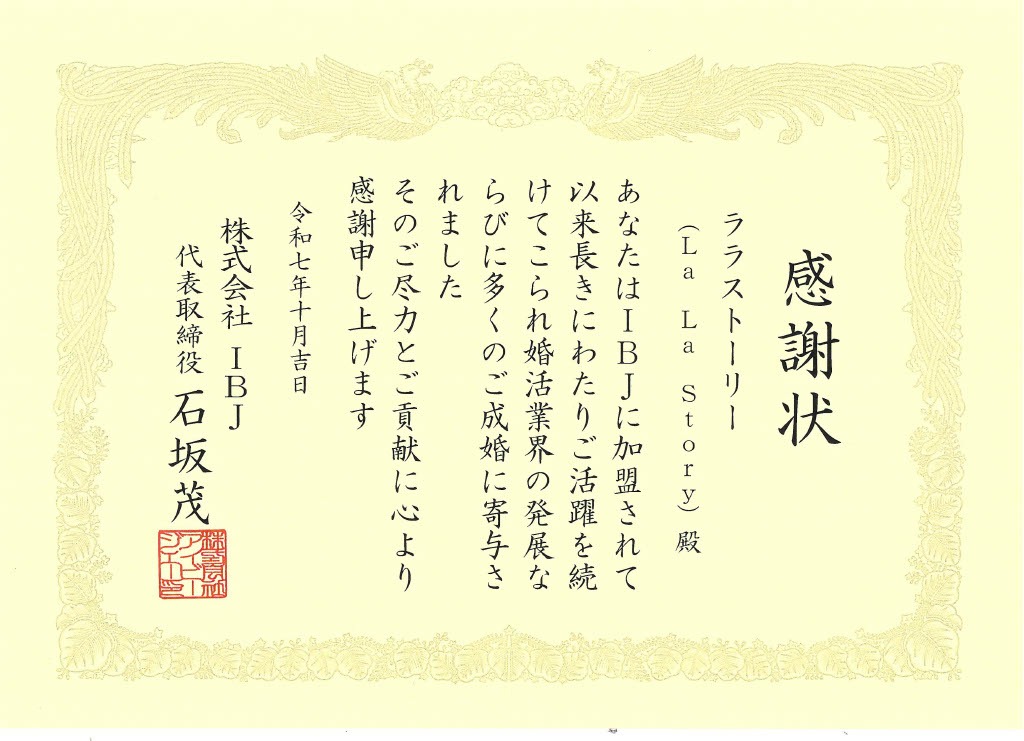 感謝状
ララストーリー
（La La Story）殿
あなたはIBJに加盟されて
以来長きにわたりご活躍を続
けてこられ婚活業界の発展な
らびに多くのご成婚に寄与さ
れました
そのご尽力とご貢献に心より
感謝申し上げます
令和七年十月吉日
株式会社 IBJ
代表取締役 石坂茂